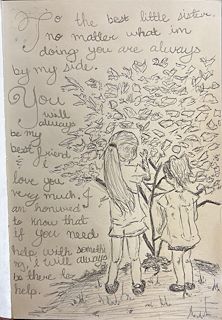 To the best little sister,
no matter what im
doing you are always
by my side.
You
will
always
be my
best friend, I
love you
very much. I
am honoured
to know that
if you need
help with someth
ng, I will always
be there to
help.